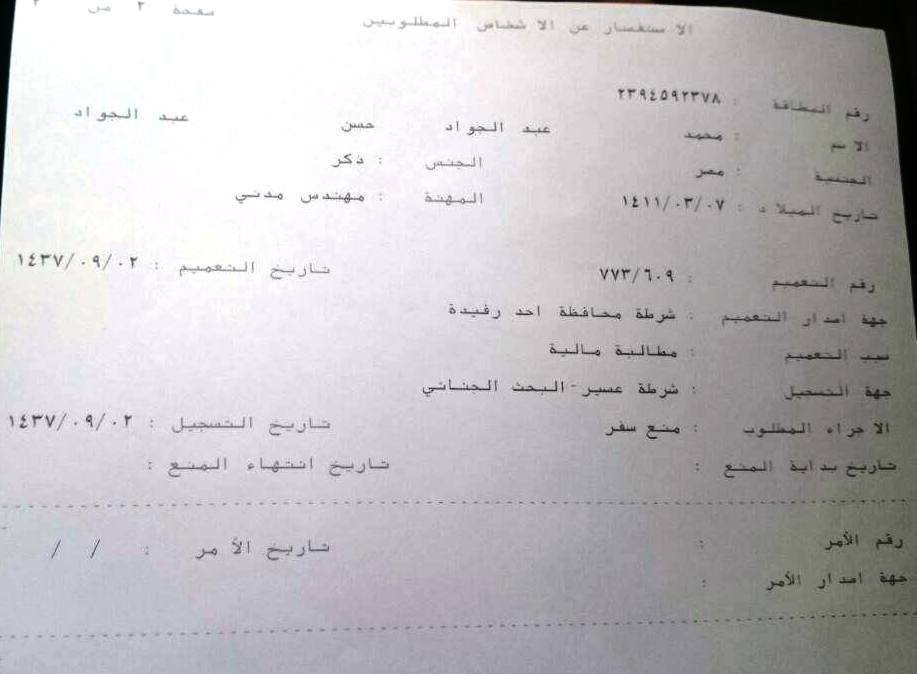 الاستفسار عن الاشخاص المطلوبين صفحة ٢ من ٢
رقم البطاقة : ٢٣٩٤٥٩٢٣٧٨
الاسم : محمد عبد الجواد حسن عبد الجواد
الجنسية : مصر الجنس : ذكر
تاريخ الميلاد : ١٤١١/٠٣/٠٧ المهنة : مهندس مدني
رقم التعميم : ٧٧٣/٦٠٩ تاريخ التعميم : ١٤٣٧/٠٩/٠٢
جهة اصدار التعميم : شرطة محافظة احد رفيدة
سبب التعميم : مطالبة مالية
جهة التسجيل : شرطة عسير-البحث الجنائي
الاجراء المطلوب : منع سفر تاريخ التسجيل : ١٤٣٧/٠٩/٠٢
تاريخ بداية المنع : تاريخ انتهاء المنع :
رقم الأمر : تاريخ الأمر : / /
جهة اصدار الأمر :